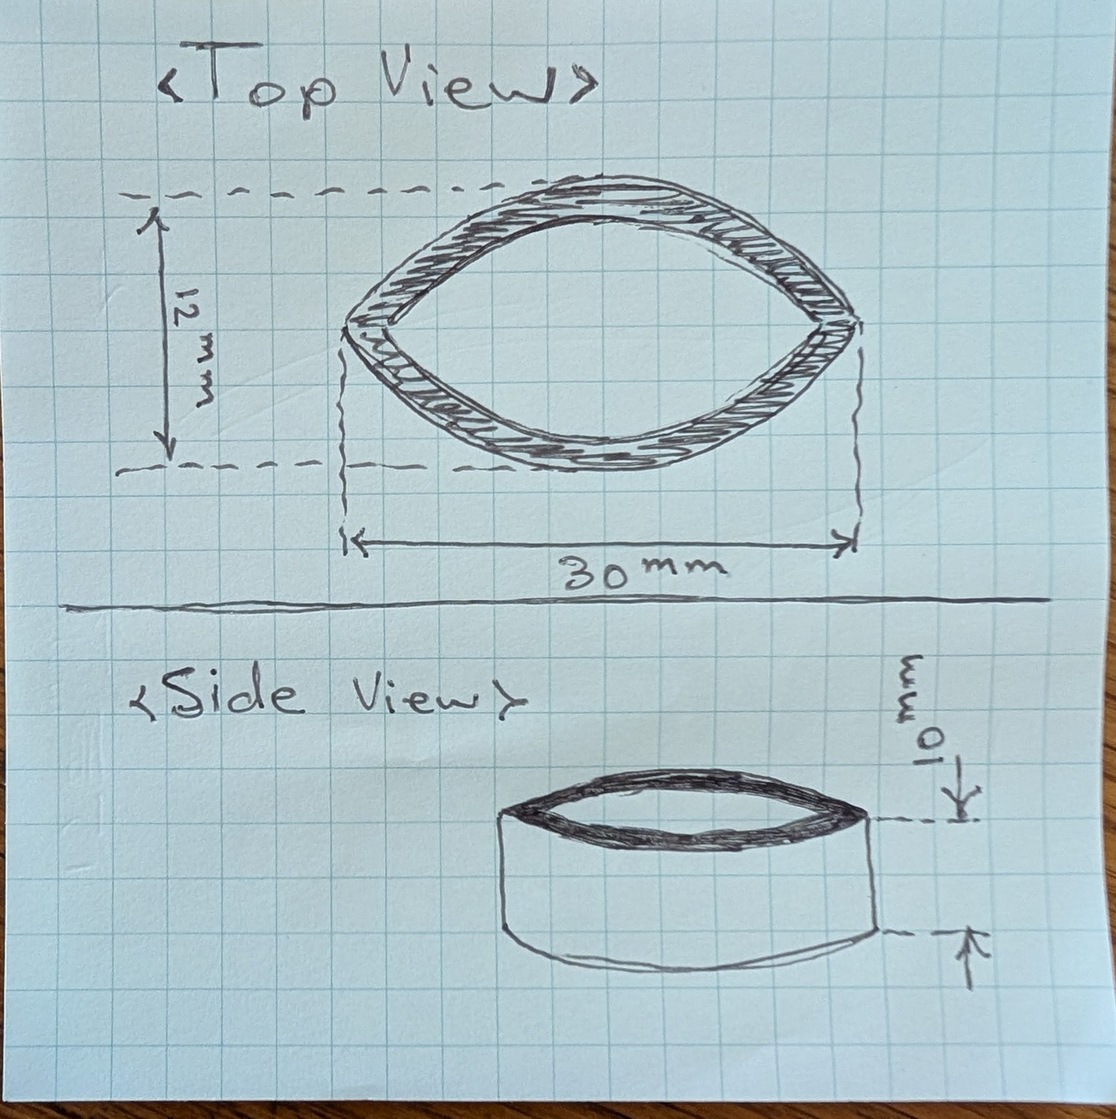 <Top View>
12 mm
30 mm
<Side View>
10 mm